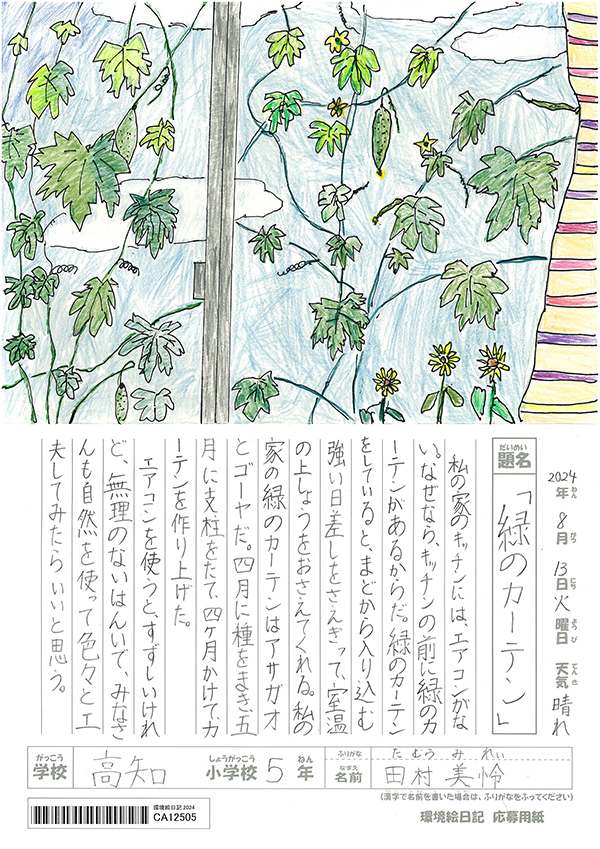 2024年ねん 8月がつ 13日にち 火曜日ようび 天気てんき 晴れ
題名だいめい 「緑のカーテン」
私の家のキッチンには、エアコンがな
い。なぜなら、キッチンの前に緑のカ
ーテンがあるからだ。緑のカーテン
をしていると、まどから入り込む
強い日差しをさえぎって、室温
の上しょうをおさえてくれる。私の
家の緑のカーテンはアサガオ
とゴーヤだ。四月に種をまき、五
月に支柱をたて、四ヶ月かけて、カ
ーテンを作り上げた。
エアコンを使うと、すずしいけれ
ど、無理のないはんいで、みなさ
んも自然を使って色々と工
夫してみたらいいと思う。
学校がっこう 高知 小学校しょうがっこう 5年ねん
ふりがな たむら みれい
名前なまえ 田村 美怜
(漢字で名前を書いた場合は、ふりがなをふってください)
環境絵日記2024
CA12505
環境絵日記 応募用紙